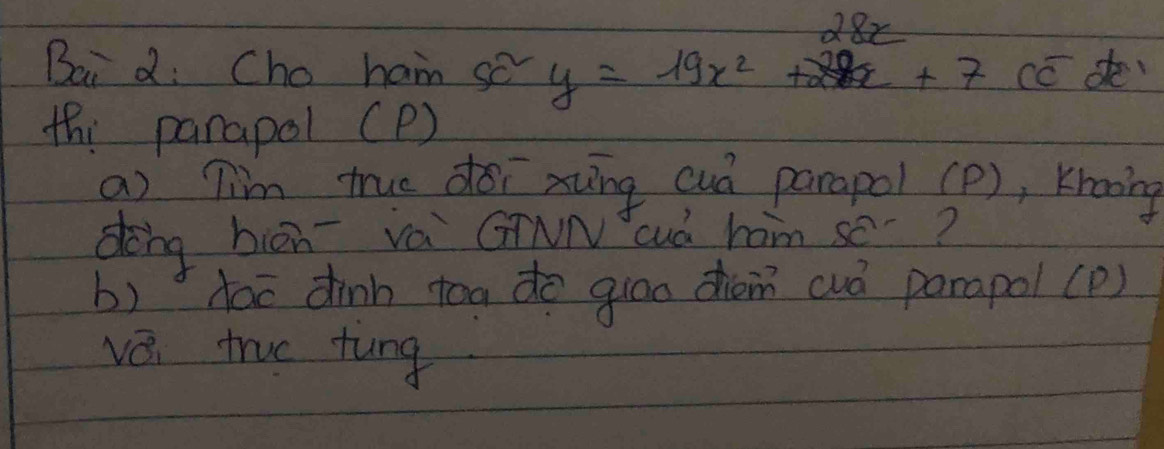 28x
Bài 2: Cho hàm số y = 19x² + + 7 có đồ
thị parapol (P)
a) Tìm trục đối xứng của parapol (P), khoảng
đồng biến và GTNN của hàm số ?
b) xác định tọa độ giao điểm của parapol (P)
với trục tung.